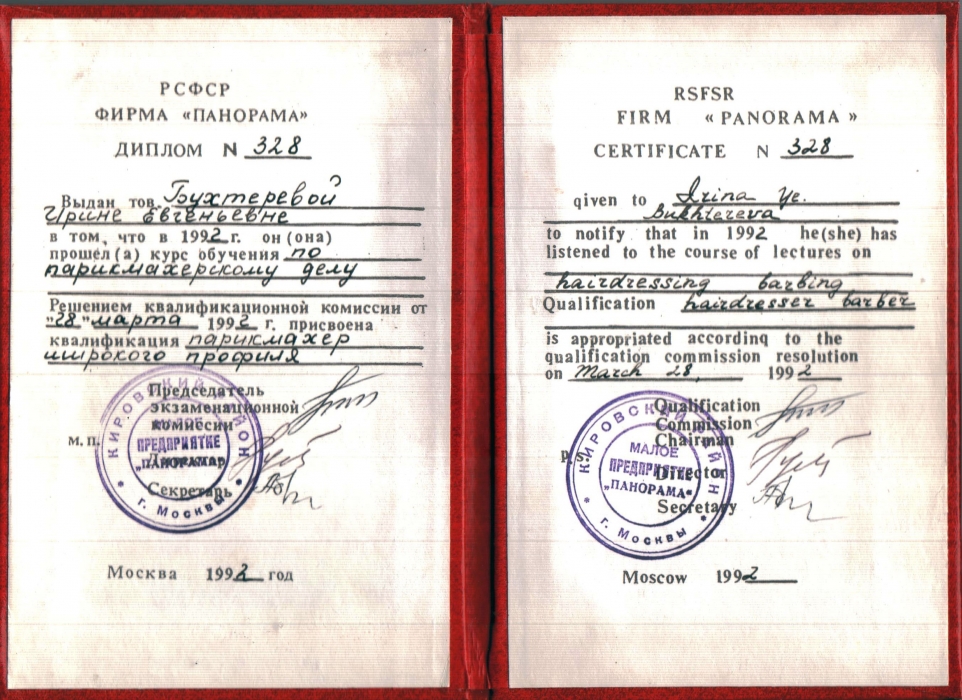 РСФСР
ФИРМА «ПАНОРАМА»
ДИПЛОМ N 328
Выдан тов. Бухтеревой
Ирине Евгеньевне
в том, что в 1992 г. он (она)
прошел(а) курс обучения по
парикмахерскому делу
Решением квалификационной комиссии от
"28" марта 1992 г. присвоена
квалификация парикмахер
широкого профиля
Председатель
экзаменационной
комиссии
м. п.
Директор
Секретарь
КИРОВСКИЙ РАЙОН
МАЛОЕ
ПРЕДПРИЯТИЕ
„ПАНОРАМА“
* г. Москвы *
Москва 1992 год
RSFSR
FIRM « PANORAMA »
CERTIFICATE N 328
qiven to Irina Ye.
Bukhtereva
to notify that in 1992 he(she) has
listened to the course of lectures on
hairdressing barbing
Qualification hairdresser barber
is appropriated accordinq to the
qualification commission resolution
on March 28, 1992
Qualification
Commission
Chairman
p. s.
Director
Secretary
КИРОВСКИЙ РАЙОН
МАЛОЕ
ПРЕДПРИЯТИЕ
„ПАНОРАМА“
* г. Москвы *
Moscow 1992